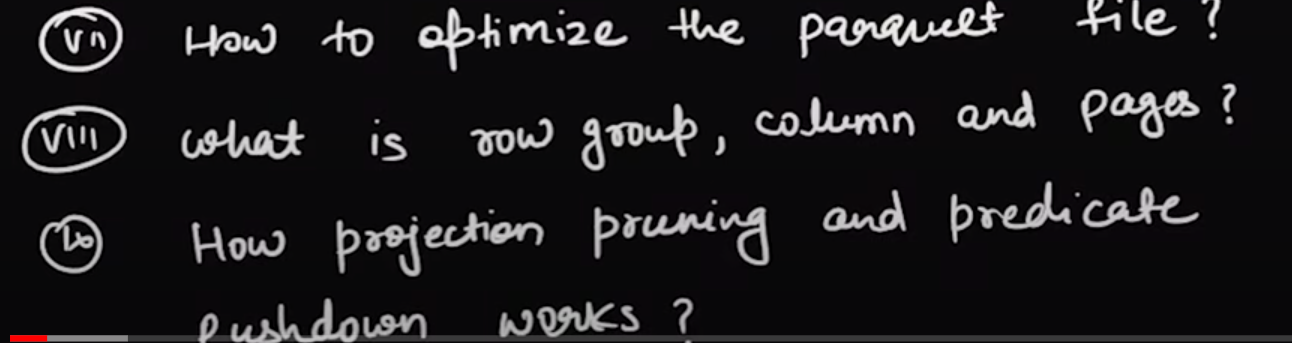 VII How to optimize the parquet file ?
VIII what is row group, column and pages ?
How projection pruning and predicate
pushdown works ?